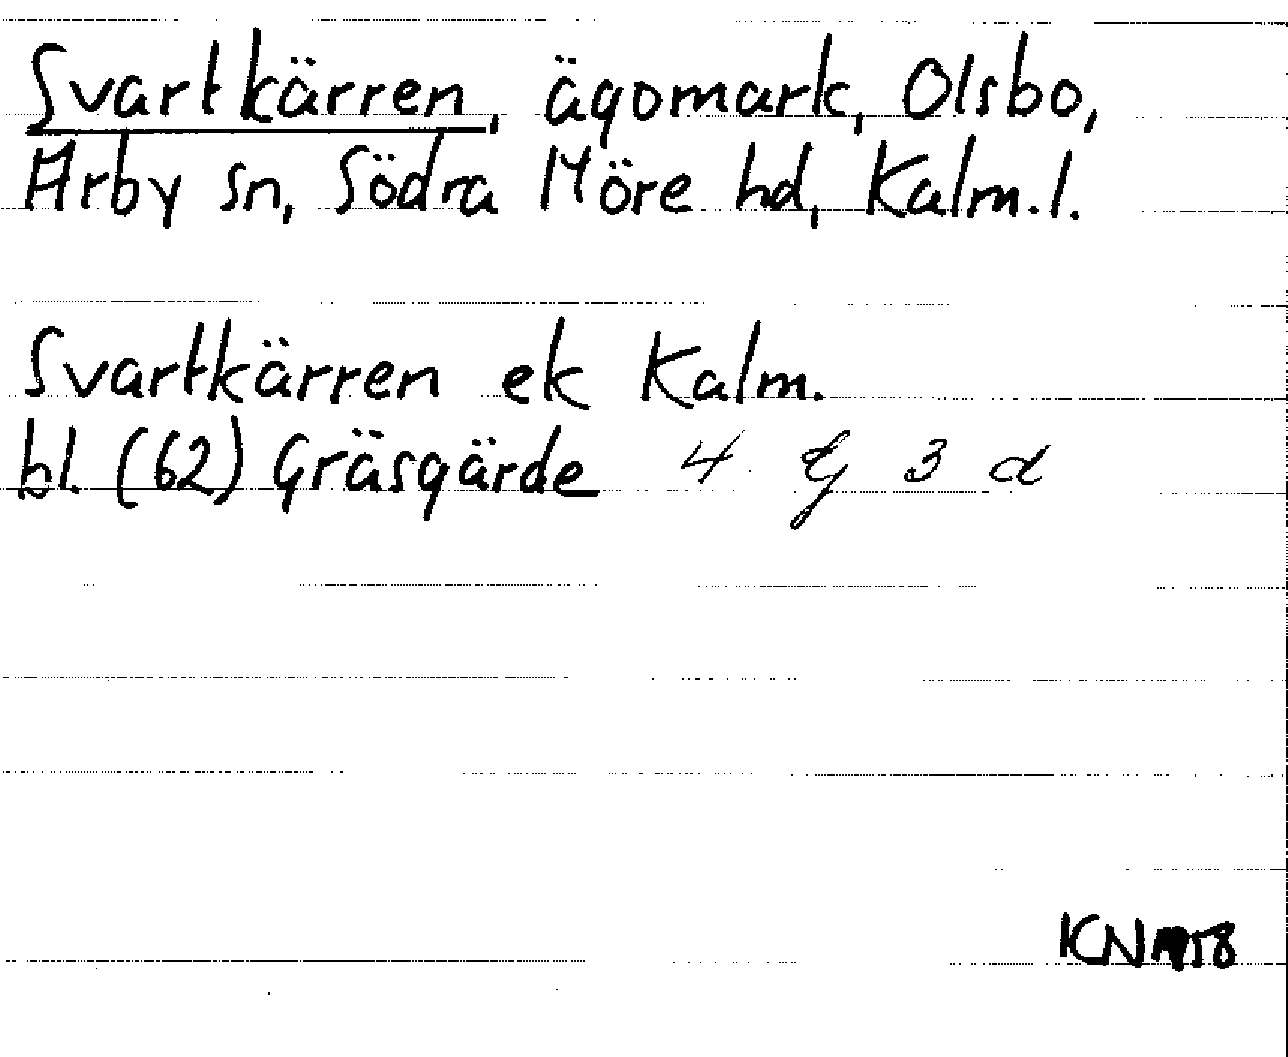 Svartkärren, ägomark, Olsbo,
Arby sn, Södra Möre hd, Kalm.l.
Svartkärren ek Kalm.
bl. (62) Gräsgärde 4 G 3 d
KN 1958